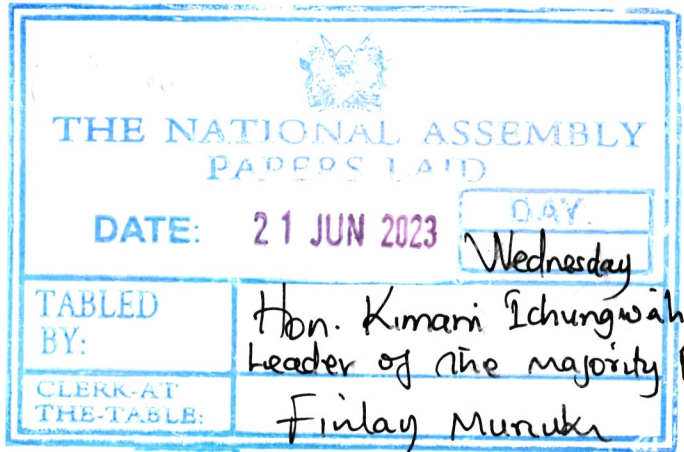 THE NATIONAL ASSEMBLY
PAPERS LAID
DATE: 21 JUN 2023
DAY.
Wednesday
TABLED
BY:
Hon. Kimani Ichungwah
Leader of the majority
CLERK-AT
THE-TABLE:
Finlay Muriuki